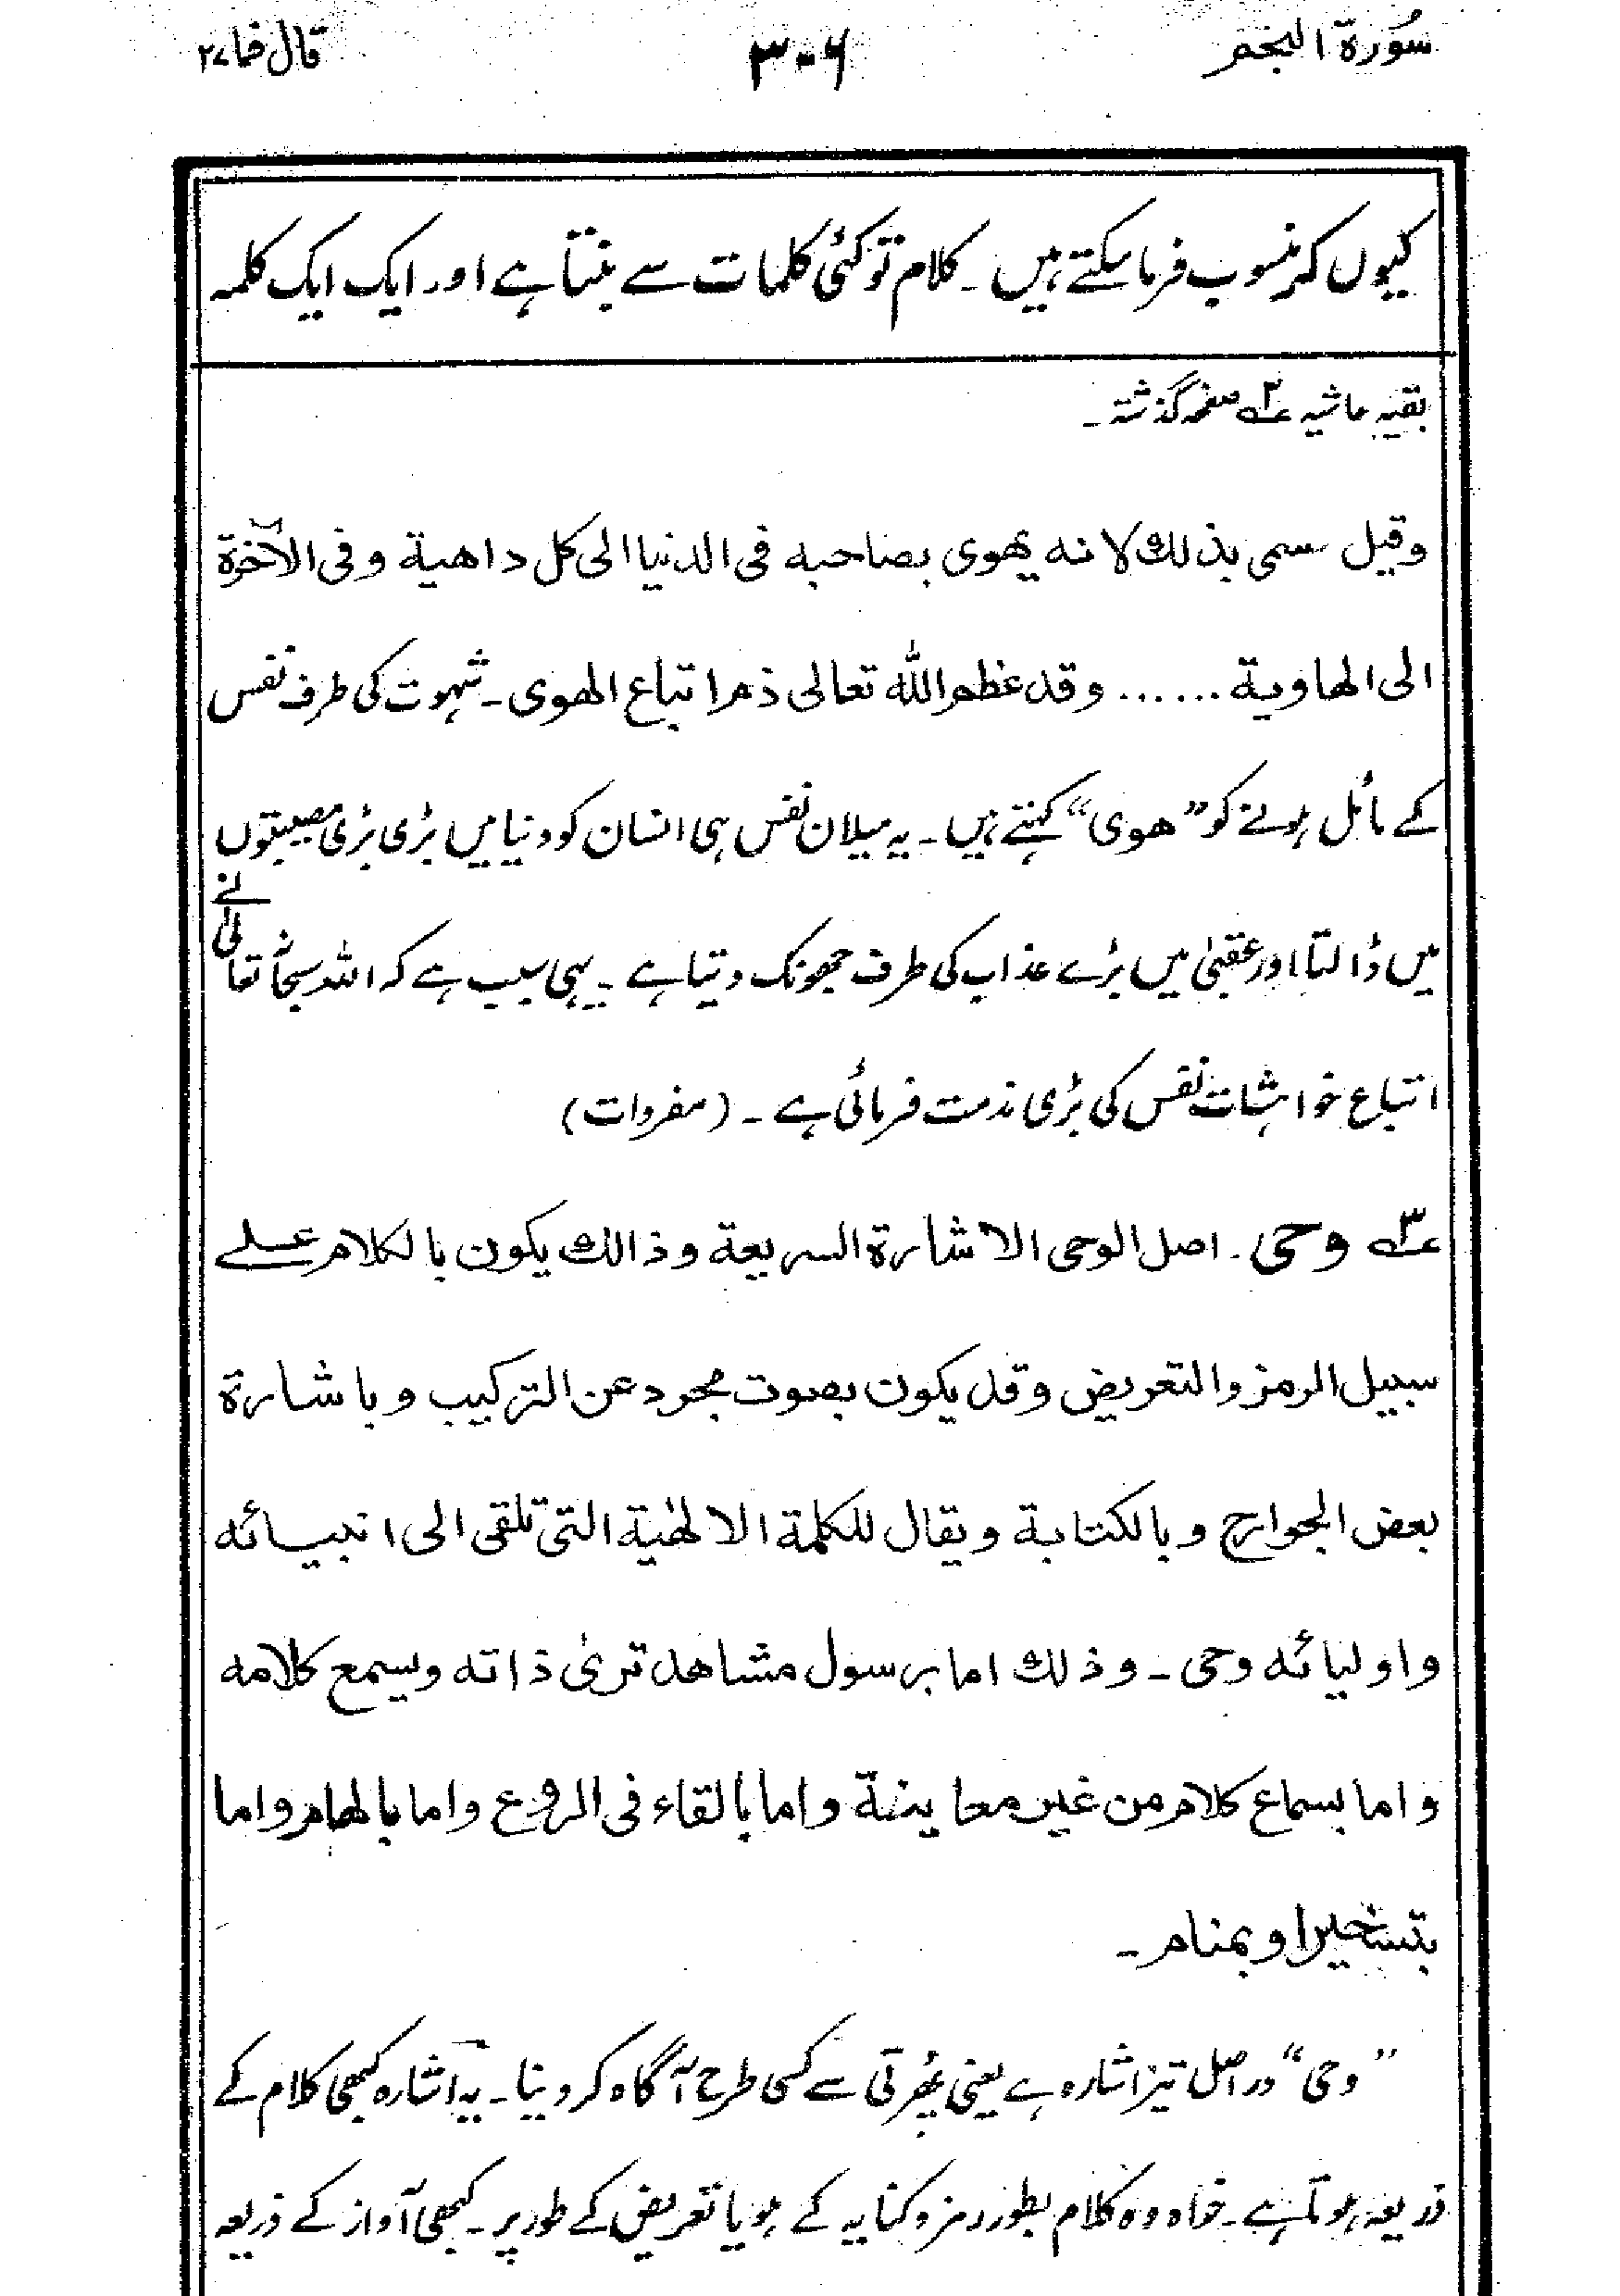 سُورۃ النجم
۳۰۶
قال فما ۲۷
کیوں کر منسوب فرما سکتے ہیں ۔ کلام تو کئی کلمات سے بنتا ہے اور ایک ایک کلمہ
بقیہ حاشیہ ۲؎ صفحہ گذشتہ ۔
وقیل سمی بذلك لانه یهوی بصاحبه فی الدنیا الی کل داهیة وفی الآخرة
الی الهاویة ...... وقد عظم الله تعالی ذم اتباع الهوی ۔ شہوت کی طرف نفس
کے مائل ہونے کو ”هوی“ کہتے ہیں ۔ یہ میلان نفس ہی انسان کو دنیا میں بڑی بڑی مصیبتوں
میں ڈالتا اور عقبیٰ میں بڑے عذاب کی طرف جھونک دیتا ہے ۔ یہی سبب ہے کہ اللہ سبحانہٗ تعالیٰ نے
اتباع خواہشات نفس کی بڑی مذمت فرمائی ہے ۔ (مفردات)
۳؎ وحی ۔ اصل الوحی الاشارة السریعة وذالك یکون بالکلام علے
سبیل الرمز والتعریض وقد یکون بصوت مجرد عن الترکیب وباشارة
بعض الجوارح وبالکتابة ویقال للکلمة الالٰهیة التی تلقی الی انبیائه
واولیائه وحی ۔ وذلك اما برسول مشاهد تریٰ ذاته ویسمع کلامه
واما بسماع کلام من غیر معاینة واما بالقاء فی الروع واما بالهام واما
بتسخیر او بمنام ۔
”وحی“ دراصل تیز اشارہ ہے یعنی پھُرتی سے کسی طرح آگاہ کر دینا ۔ یہ اشارہ کبھی کلام کے
ذریعہ ہوتا ہے ۔ خواہ وہ کلام بطور رمز و کنایہ کے ہو یا تعریض کے طور پر ۔ کبھی آواز کے ذریعہ